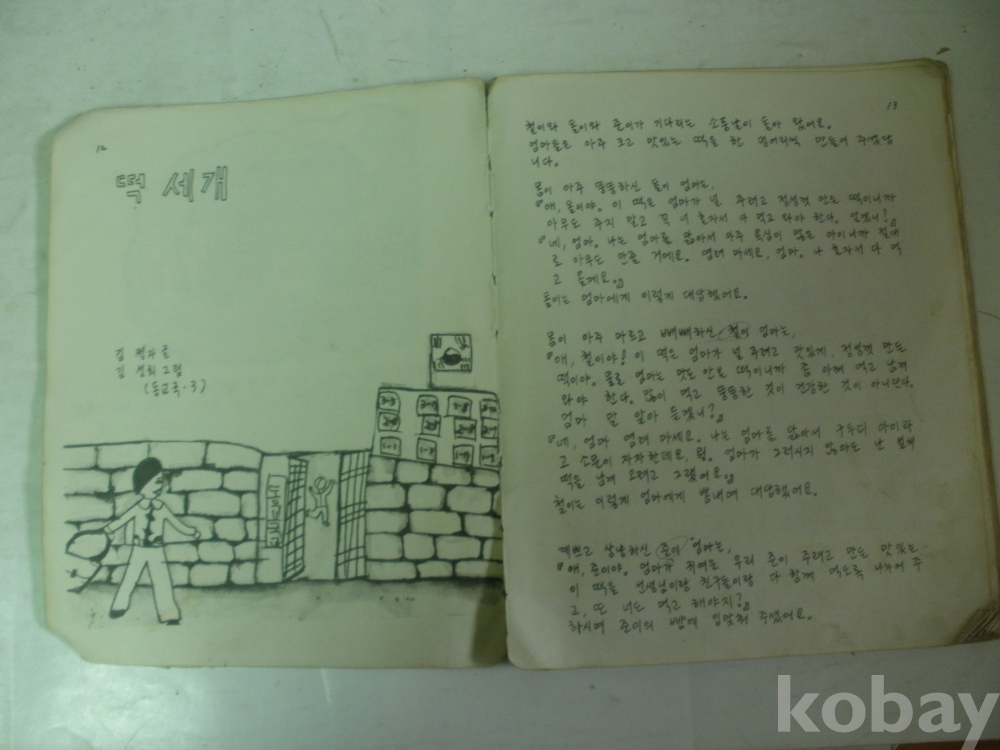 12
떡 세개
김 평자 글
김 성희 그림
(동교국·3)
13
철이와 돌이와 준이가 기다리는 소풍날이 돌아 왔어요.
엄마들은 아주 크고 맛있는 떡을 한 덩어리씩 만들어 주셨답
니다.
몸이 아주 뚱뚱하신 돌이 엄마는,
『얘, 돌이야. 이 떡은 엄마가 널 주려고 정성껏 만든 떡이니까
아무도 주지 말고 꼭 너 혼자서 다 먹고 와야 한다. 알겠니?』
『네, 엄마. 나는 엄마를 닮아서 아주 욕심이 많은 아이니까 절대
로 아무도 안줄 거예요. 염려 마세요, 엄마. 나 혼자서 다 먹
고 올께요.』
돌이는 엄마에게 이렇게 대답했어요.
몸이 아주 마르고 빼빼하신 철이 엄마는,
『얘, 철이야! 이 떡은 엄마가 널 주려고 맛있게, 정성껏 만든
떡이야. 물론 엄마는 맛도 안본 떡이니까 좀 아껴 먹고 남겨
와야 한다. 많이 먹고 뚱뚱한 것이 건강한 것이 아니란다.
엄마 말 알아 듣겠니?』
『네, 엄마 염려 마세요. 나는 엄마를 닮아서 구두쇠 아이라
고 소문이 자자한데요, 뭘. 엄마가 그러시지 않아도 난 벌써
떡을 남겨 오려고 그랬어요.』
철이는 이렇게 엄마에게 뽐내며 대답했어요.
예쁘고 상냥하신 준이 엄마는,
『얘, 준이야. 엄마가 귀여운 우리 준이 주려고 만든 맛있는
이 떡을 선생님이랑 친구들이랑 다 함께 먹도록 나누어 주
고, 또 너도 먹고 해야지?』
하시며 준이의 뺨에 입맞춰 주셨어요.
kobay